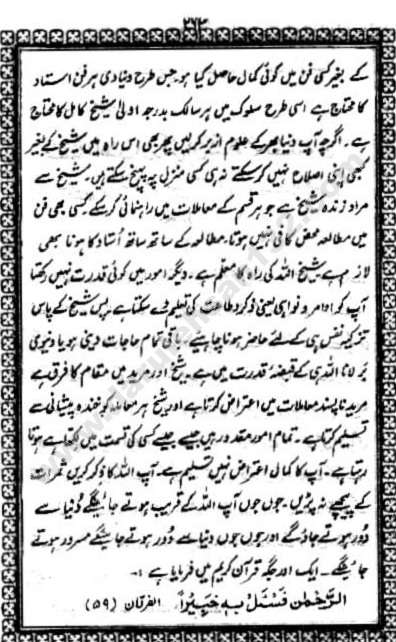 ۳۷۳
کے بغیر کسی فن میں کوئی کمال حاصل کیا ہو جس طرح دنیاوی ہر فن استاد
کا محتاج ہے اسی طرح سلوک میں ہر سالک بدرجہ اولیٰ شیخ کامل کا محتاج
ہے۔ اگرچہ آپ دنیا بھر کے علوم ازبر کرلیں پھر بھی اس راہ میں شیخ کے بغیر
کبھی اپنی اصلاح نہیں کرسکتے نہ ہی کسی منزل پہ پہنچ سکتے ہیں۔ شیخ سے
مراد زندہ شیخ ہے جو ہر قسم کے معاملات میں راہنمائی کرسکے کسی بھی فن
میں مطالعہ محض کافی نہیں ہوتا۔ مطالعہ کے ساتھ ساتھ اُستاد کا ہونا بھی
لازم ہے شیخ اللہ کی راہ کا معلم ہے۔ دیگر امور میں کوئی قدرت نہیں رکھتا
آپ کو اوامر و نواہی یعنی ذکر و طاعت کی تعلیم دے سکتا ہے۔ پس شیخ کے پاس
تزکیہ نفس ہی کے لئے حاضر ہونا چاہیے۔ باقی تمام حاجات دینی ہو یا دنیوی
بَر لانا اللہ ہی کے قبضۂ قدرت میں ہے۔ شیخ اور مرید میں مقام کا فرق ہے
مرید ناپسند معاملات میں اعتراض کرتا ہے اور شیخ ہر معاملہ کو خندہ پیشانی سے
تسلیم کرتا ہے۔ تمام امور مقدر ہیں جیسے جیسے کسی کی قسمت میں لکھا ہے ہوتا
رہتا ہے۔ آپ کا کمال اعتراض نہیں تسلیم ہے۔ آپ اللہ کا ذکر کریں ثمرات
کے پیچھے نہ پڑیں۔ جوں جوں آپ اللہ کے قریب ہوتے جائینگے دُنیا سے
دُور ہوتے جاؤ گے اور جوں جوں دنیا سے دُور ہوتے جائینگے مسرور ہوتے
جائینگے۔ ایک اور جگہ قرآن کریم میں فرمایا ہے :-
الرَّحْمٰنُ فَسْـَٔلْ بِهٖ خَبِیْرًا۔ الفرقان (۵۹)